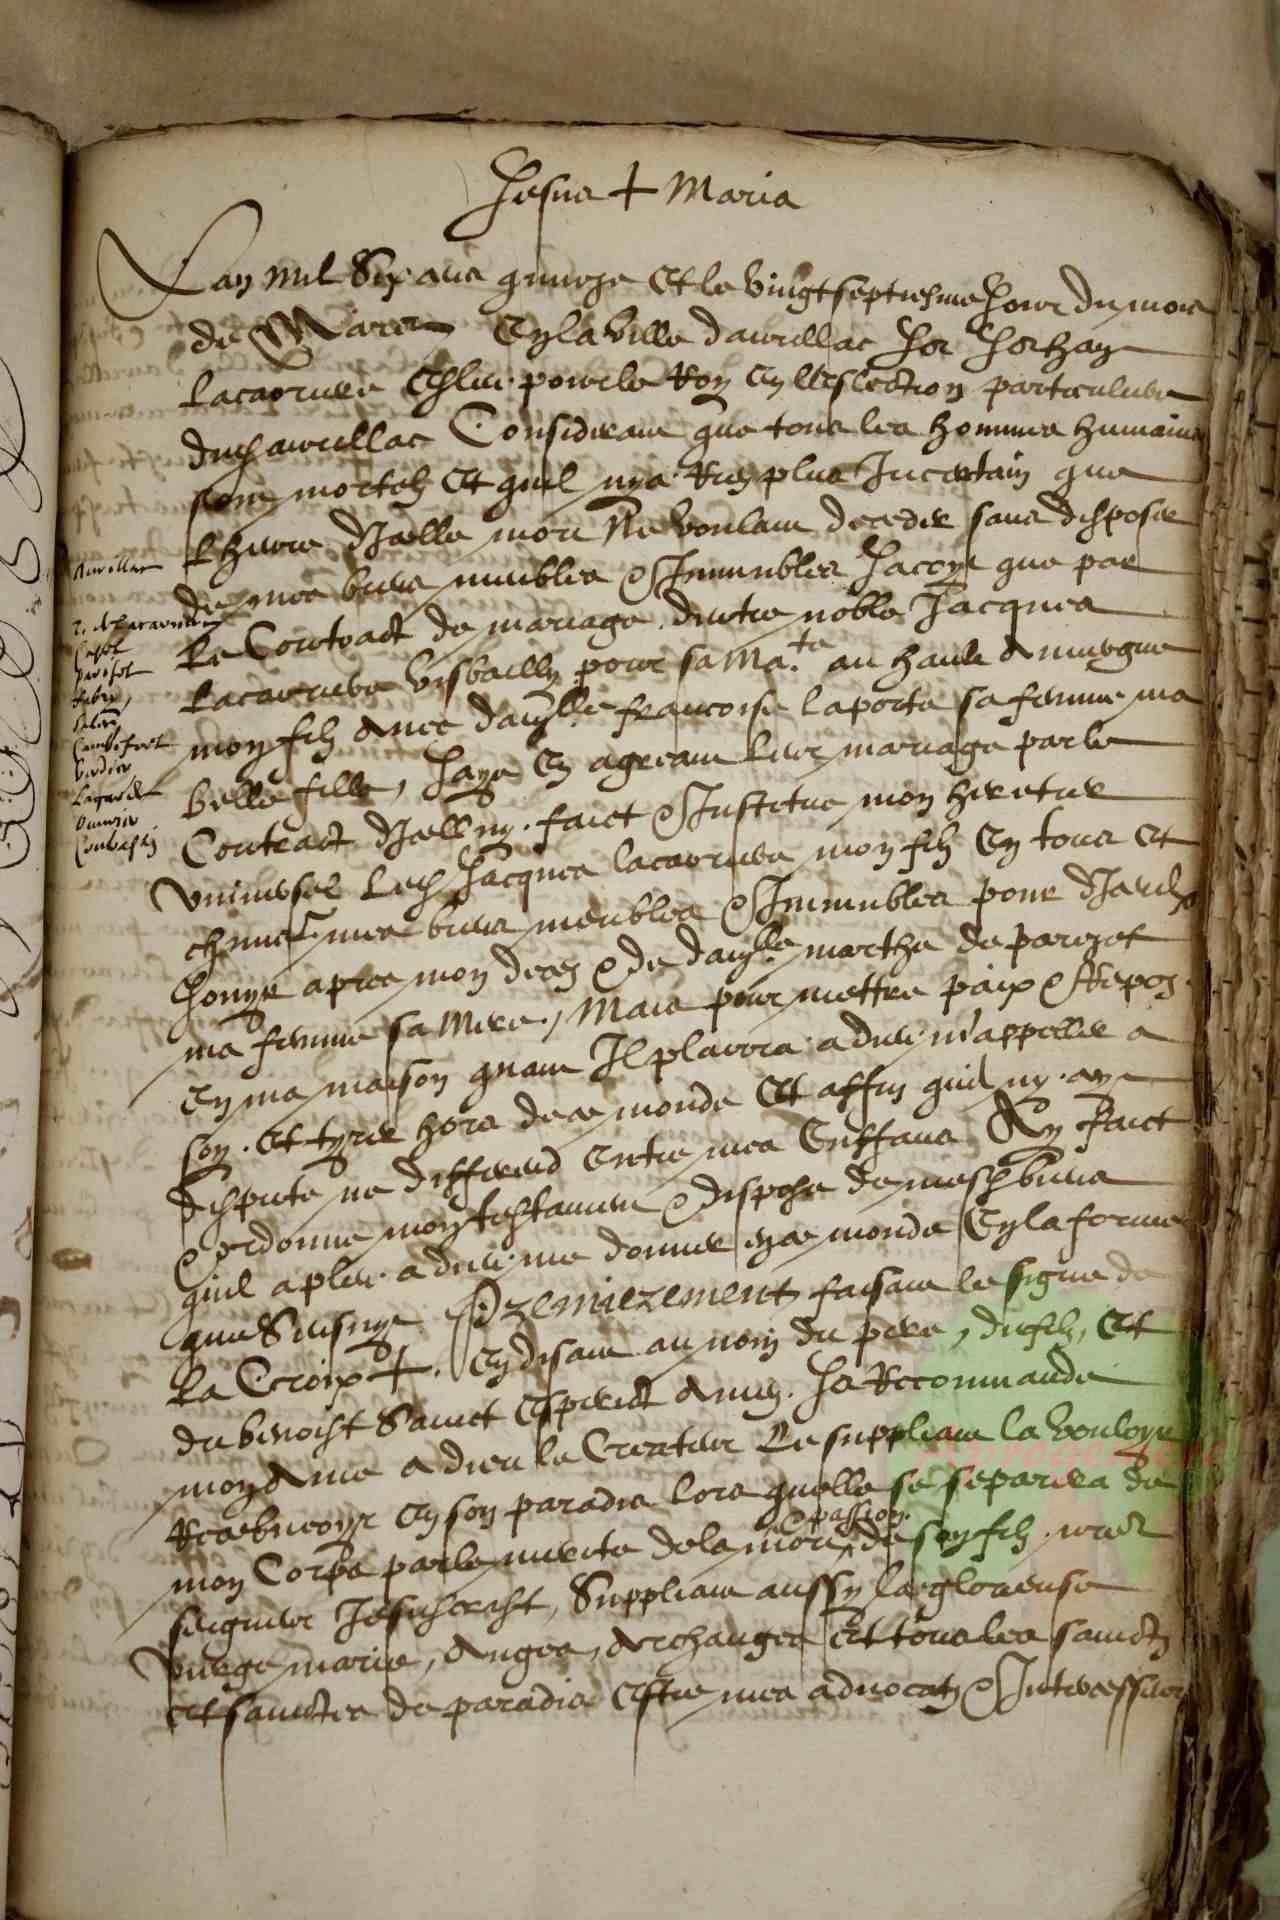 Jesus + Maria
Lan mil Six cens quinze Et le vingtseptiesme Jour du mois
de Mars En la ville daurillac Je Jehan
Lacarriere Esleu pour le Roy en lleslection particuliere
dud aurillac Considerant que tous les hommes humains
sont mortelz Et quil nya Rien plus Incertain que
lheure dicelle mort Ne voulant deceder sans disposer
de mes biens meubles & Immeubles Jacoyt que par
Le Contract de mariage dentre noble Jacques
Lacarriere visbailly pour sa Ma.te au hault Auvergne
mon filz Avec dam.lle francoise laporte sa femme ma
belle fille, Jaye En agreant leur mariage par le
Contract dicelluy faict & Institue mon heretier
universel Led Jacques lacarriere mon filz En tous Et
chnuns mes biens meubles & Immeubles pour diceulx
Jouyr apres mon deces & de dam.lle marthe de parizot
ma femme sa Mere, Mais pour mettre paix & Repoz
En ma maison quant Il plairra a dieu m'appeller a
soy Et tyrer hors de ce monde Et affin quil ny aye
dispute ne differend Entre mes Enffans Ay faict
& ordonne mon testament & dispose de mesd biens
quil a pleu a dieu me donner en ce monde En la forme
que Sensuyt Premierement faisant le signe de
La Croix + En disant au nom du pere, du filz, Et
du benoist Sainct Esperit Amen. Je Recommande
mon Ame a dieu le Createur Le suppliant la vouloyr
Recebveoyr En son paradis lors quelle se separera de
mon Corps par le merite de la mort & passion de son filz nre
seigneur Jesuchrist, Suppliant aussy la glorieuse
vierge marie, Anges, Archanges Et tous les sainctz
Et sainctes de paradis Estre mes advocatz & Intercesseurs
Aurillac
Parisot
Cambefort
Verdier
Lagarde